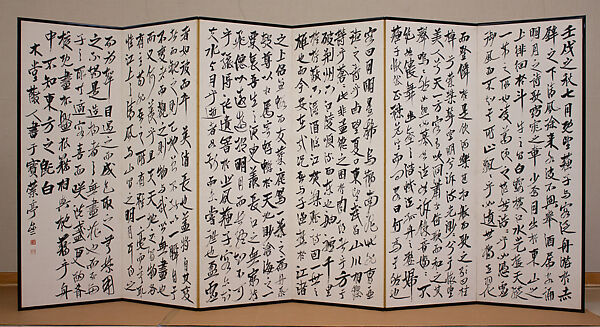 壬戌之秋七月既望蘇子与客泛舟游於赤
壁之下清風徐来水波不興挙酒属客誦
明月之詩歌窈窕之章少焉月出於東山之
上徘徊於斗牛之間白露横江水光接天縦
一葦之所如凌萬頃之茫然浩浩乎如憑虚
御風而不知其所止飄飄乎如遺世獨立羽化
而登仙於是飲酒樂甚扣舷而歌之歌曰桂
棹兮蘭槳撃空明兮泝流光渺渺兮予懐望
美人兮天一方客有吹洞簫者倚歌而和之其
聲嗚嗚然如怨如慕如泣如訴餘音嫋嫋不
絶如縷舞幽壑之潜蛟泣孤舟之嫠婦
蘇子愀然正襟危坐而問客曰何為其然也
客曰月明星稀烏鵲南飛此非曹孟
徳之詩乎西望夏口東望武昌山川相繆
鬱乎蒼蒼此非孟徳之困於周郎者乎方其
破荊州下江陵順流而東也舳艫千里
旌旗蔽空釃酒臨江横槊賦詩固一世之
雄也而今安在哉況吾與子漁樵於江渚
之上侶魚鰕而友麋鹿駕一葉之扁舟
舉匏尊以相属寄蜉蝣於天地渺滄海之一
粟哀吾生之須臾羨長江之無窮挾
飛仙以遨遊抱明月而長終知不可
乎驟得託遺響於悲風蘇子曰客亦知
夫水与月乎逝者如斯而未嘗往也盈虚
者如彼而卒莫消長也蓋將自其変
者而観之則天地曾不能以一瞬自其
不変者而観之則物與我皆無盡也
而又何羨乎且夫天地之間物各
有主苟非吾之所有雖一毫而莫取
惟江上之清風與山間之明月耳得之
而為聲目遇之而成色取之無禁用
之不竭是造物者之無盡藏也而吾與
子之所共適客喜而笑洗盞更酌肴
核既盡杯盤狼藉相與枕藉乎舟
中不知東方之既白
木堂散人書于寶